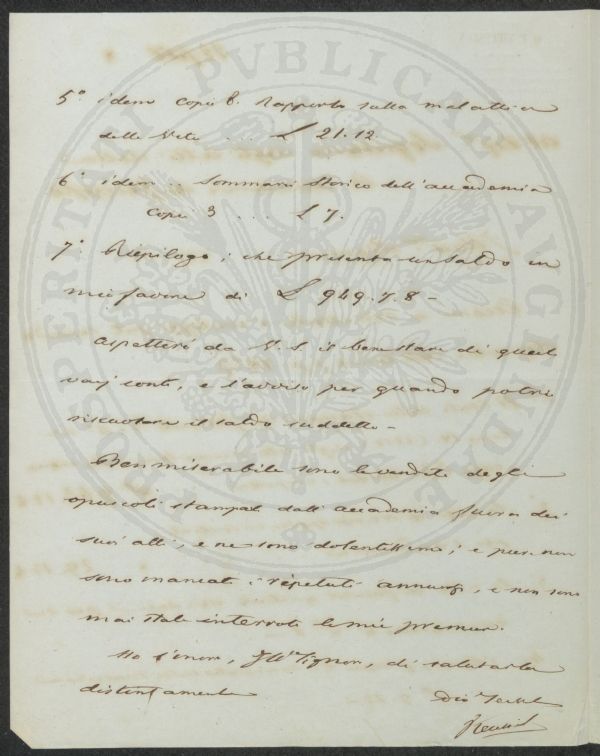 PROSPERITATI PVBLICAE AVGENDAE
5° idem copie 8. Rapporto sulla malattia
delle Viti ... £ 21.12
6° idem .. Sommario Storico dell'accademia
Copie 3 ... £ 7.
7° Riepilogo; che presenta un saldo in
mio favore di £ 949.7.8 -
Aspetterò da V. S. il benestare di questi
varj conti, e l'avviso per quando potrò
riscuotere il saldo suddetto -
Ben miserabile sono le vendite degli
opuscoli stampati dall'accademia fuora dei
suoi atti, e ne sono dolentissimo; e pure non
sono mancati i ripetuti annunzj, e non sono
mai state interrotte le mie premure.
Ho l'onore, Ill° Signore, di salutarla
distintamente